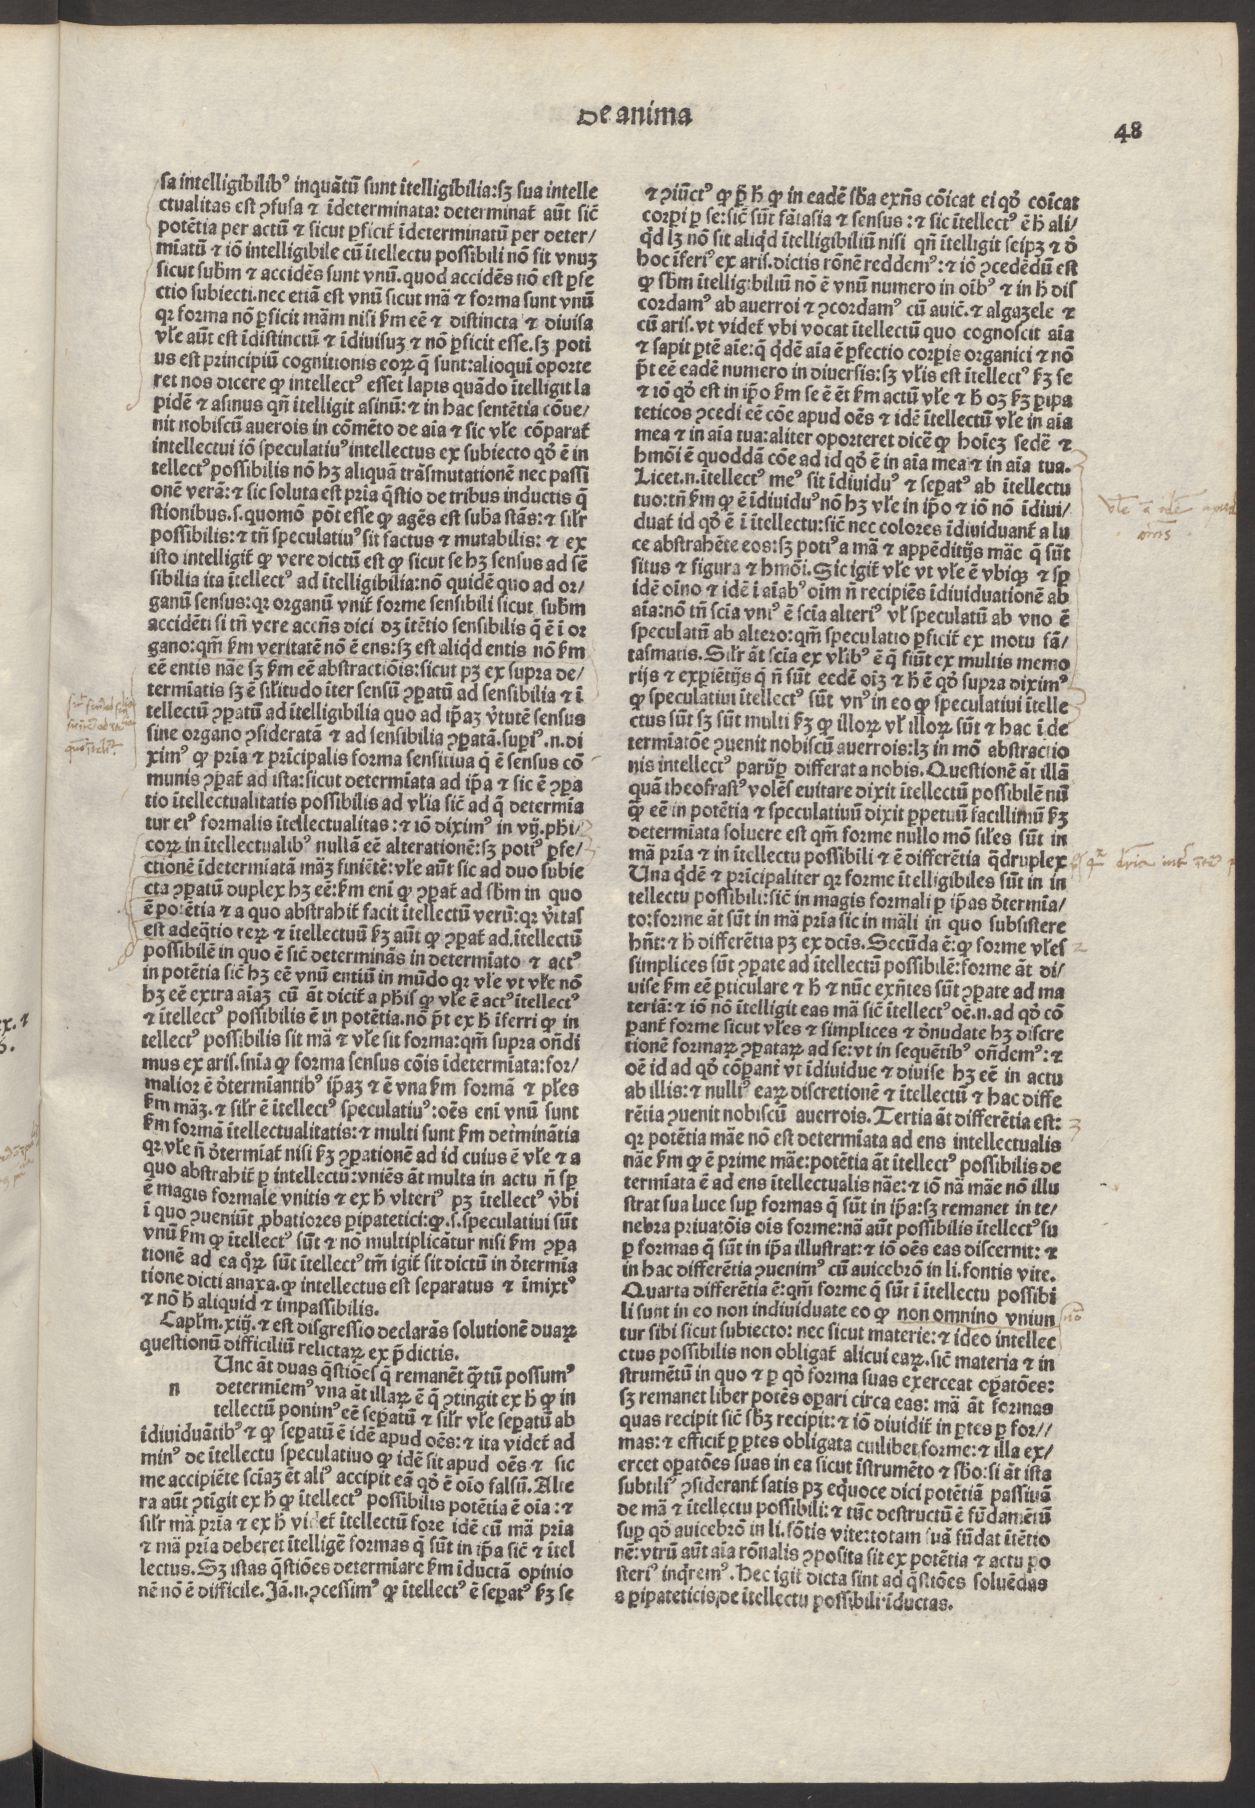 De anima
48
sa intelligibilibꝰ inquãtũ sunt ĩtelligibilia:sꝫ sua intelle
ctualitas est ꝯfusa ⁊ ĩdeterminata: determinat̃ aũt sic̃
potẽtia per actũ ⁊ sicut ꝑficit̃ ĩdeterminatũ per deter/
mĩatũ ⁊ iõ intelligibile cũ ĩtellectu possibili nõ sit vnuꝫ
sicut subm̃ ⁊ accidẽs sunt vnũ.quod accidẽs nõ est ꝑfe
ctio subiecti.nec etiã est vnũ sicut mã ⁊ forma sunt vnũ
qꝛ forma nõ ꝑficit mãm nisi ẜm eẽ ⁊ distincta ⁊ diuisa
vl̃e aũt est ĩdistinctũ ⁊ ĩdiuisuꝫ ⁊ nõ ꝑficit esse.sꝫ poti
us est principiũ cognitionis eoꝝ q̃ sunt:alioqui oporte
ret nos dicere ꝙ intellectꝰ esset lapis quãdo ĩtelligit la
pidẽ ⁊ asinus qñ ĩtelligit asinũ: ⁊ in hac sentẽtia cõue/
nit nobiscũ auerois in cõmẽto de aĩa ⁊ sic vl̃e cõparat̃
intellectui iõ speculatiuꝰ intellectus ex subiecto qð ẽ in
tellectꝰ possibilis nõ hꝫ aliquã trãsmutationẽ nec passi
onẽ verã: ⁊ sic soluta est pria q̃stio de tribus inductis q̃
stionibus.s.quomõ põt esse ꝙ agẽs est suba stãs: ⁊ sil̃r
possibilis: ⁊ tñ speculatiuꝰ sit factus ⁊ mutabilis: ⁊ ex
isto intelligit̃ ꝙ vere dictũ est ꝙ sicut se hꝫ sensus ad sẽ
sibilia ita ĩtellectꝰ ad ĩtelligibilia:nõ quidẽ quo ad or/
ganũ sensus:qꝛ organũ vnit̃ forme sensibili sicut subm̃
accidẽti si tñ vere accñs dici dꝫ ĩtẽtio sensibilis q̃ ẽ ĩ or
gano:qm̃ ẜm veritatẽ nõ ẽ ens:sꝫ est aliq̃d entis nõ ẜm
eẽ entis nãe sꝫ ẜm eẽ abstractiõis:sicut pꝫ ex supra de/
termĩatis sꝫ ẽ sil̃itudo ĩter sensũ ꝯꝑatũ ad sensibilia ⁊ ĩ
tellectũ ꝯꝑatũ ad ĩtelligibilia quo ad ip̃aꝫ v̾tutẽ sensus
sine organo ꝯsideratã ⁊ ad sensibilia ꝯꝑatã.supꝰ.n.di
ximꝰ ꝙ pria ⁊ prĩcipalis forma sensitiua q̃ ẽ sensus cõ
munis ꝯꝑat̃ ad ista:sicut determĩata ad ip̃a ⁊ sic ẽ ꝯꝑa
tio ĩtellectualitatis possibilis ad vl̃ia sic̃ ad q̃ determĩa
tur eiꝰ formalis ĩtellectualitas: ⁊ iõ diximꝰ in vij.phi/
coꝝ in ĩtellectualibꝰ nullã eẽ alterationẽ:sꝫ potiꝰ ꝑfe/
ctionẽ ĩdetermiatã mãꝫ finiẽtẽ:vl̃e aũt sic ad duo subie
cta ꝯꝑatũ duplex hꝫ eẽ:ẜm eni ꝙ ꝯꝑat̃ ad sb̃m in quo
ẽ potẽtia ⁊ a quo abstrahit̃ facit ĩtellectũ verũ:qꝛ v̾itas
est adeq̃tio reꝝ ⁊ ĩtellectuũ ẜꝫ aũt ꝙ ꝯꝑat̃ ad.ĩtellectũ
possibilẽ in quo ẽ sic̃ determinãs in determĩato ⁊ actꝰ
in potẽtia sic̃ hꝫ eẽ vnũ entiũ in mũdo qꝛ vl̃e vt vl̃e nõ
hꝫ eẽ extra aĩaꝫ cũ ãt dicit̃ a phĩs ꝙ vl̃e ẽ actꝰ ĩtellectꝰ
⁊ ĩtellectꝰ possibilis ẽ in potẽtia.nõ p̃t ex h̃ ĩferri ꝙ in
tellectꝰ possibilis sit mã ⁊ vl̃e sit forma:qm̃ supra oñdi
mus ex aris.sñia ꝙ forma sensus cõis ĩdetermĩata:for/
malior ẽ ð̃termĩantibꝰ ip̃aꝫ ⁊ ẽ vna ẜm formã ⁊ pl̃es
ẜm mãꝫ. ⁊ sil̃r ẽ ĩtellectꝰ speculatiuꝰ:oẽs eni vnũ sunt
ẜm formã ĩtellectualitatis: ⁊ multi sunt ẜm detr̃minãtia
qꝛ vl̃e ñ ð̃termiat̃ nisi ẜꝫ ꝯꝑationẽ ad id cuius ẽ vl̃e ⁊ a
quo abstrahit̃ ꝑ intellectũ:vniẽs ãt multa in actu ñ sꝑ
ẽ magis formale vnitis ⁊ ex h̃ vlteriꝰ pꝫ ĩtellectꝰ v̾bi
ĩ quo ꝯueniũt ꝓbatiores ꝑipatetici:ꝙ.s.speculatiui sũt
vnũ ẜm ꝙ ĩtellectꝰ sũt ⁊ nõ multiplicãtur nisi ẜm ꝯꝑa
tionẽ ad ea q̃ꝝ sũt ĩtellectꝰ tm̃ igit̃ sit dictũ in ð̃termĩa
tione dicti anaxa.ꝙ intellectus est separatus ⁊ ĩmixtꝰ
⁊ nõ h̃ aliquid ⁊ impassibilis.
Capl̃m.xiij.⁊ est disgressio declarãs solutionẽ duaꝝ
questionũ difficiliũ relictaꝝ ex p̃dictis.
Unc ãt duas q̃stiões q̃ remanẽt q̃ꝫtũ possumꝰ
n determiẽmꝰ vna ãt illaꝝ ẽ q̃ ꝯtingit ex h̃ ꝙ in
tellectũ ponimꝰ eẽ seꝑatũ ⁊ sil̃r vl̃e seꝑatũ ab
ĩdiuiduãtibꝰ ⁊ ꝙ seꝑatũ ẽ idẽ apud oẽs: ⁊ ita videt̃ ad
minꝰ de ĩtellectu speculatiuo ꝙ idẽ sit apud oẽs ⁊ sic
me accipiẽte sciaꝫ ẽt aliꝰ accipit eã qð ẽ oĩo falsũ.Alte
ra aũt ꝯtigit ex h̃ ꝙ ĩtellectꝰ possibilis potẽtia ẽ oĩa: ⁊
sil̃r mã pria ⁊ ex h̃ videt̃ ĩtellectũ fore idẽ cũ mã pria
⁊ mã pria deberet ĩtelligẽ formas q̃ sũt in ip̃a sic̃ ⁊ ĩtel
lectus.Sꝫ istas q̃stiões determĩare ẜm ĩductã opinio
nẽ nõ ẽ difficile.Jã.n.ꝯcessimꝰ ꝙ ĩtellectꝰ ẽ seꝑatꝰ ẜꝫ se
⁊ ꝯiũctꝰ ꝙ p̃ h̃ ꝙ in eadẽ sb̃a exñs cõicat ei qð cõicat
corꝑi ꝑ se:sic̃ sũt fãtasia ⁊ sensus: ⁊ sic ĩtellectꝰ ẽ h̃ ali/
q̃d lꝫ nõ sit aliq̃d ĩtelligibiliũ nisi qñ ĩtelligit seipꝫ ⁊ ð
hoc ĩferiꝰ ex aris.dictis rõnẽ reddemꝰ: ⁊ iõ ꝯcedẽdũ est
ꝙ sb̃m ĩtelligibiliũ nõ ẽ vnũ numero in oĩbꝰ ⁊ in h̃ dis
cordamꝰ ab auerroi ⁊ ꝯcordamꝰ cũ auic̃.⁊ algazele ⁊
cũ aris.vt videt̃ vbi vocat ĩtellectũ quo cognoscit aĩa
⁊ sapit ꝑtẽ aĩe:q̃ q̃dẽ aĩa ẽ ꝑfectio corꝑis organici ⁊ nõ
p̃t eẽ eadẽ numero in diuersis:sꝫ vl̃is est ĩtellectꝰ ẜꝫ se
⁊ iõ qð est in ip̃o ẜm se ẽ ẽt ẜm actũ vl̃e ⁊ h̃ oꝫ ẜꝫ ꝑipa
teticos ꝯcedi eẽ cõe apud oẽs ⁊ idẽ ĩtellectũ vl̃e in aĩa
mea ⁊ in aĩa tua:aliter oporteret dicẽ ꝙ hoĩeꝫ sedẽ ⁊
hmõi ẽ quoddã cõe ad id qð ẽ in aĩa mea ⁊ in aĩa tua.
Licet.n.ĩtellectꝰ meꝰ sit ĩdiuiduꝰ ⁊ seꝑatꝰ ab ĩtellectu
tuo:tñ ẜm ꝙ ẽ ĩdiuiduꝰ nõ hꝫ vl̃e in ip̃o ⁊ iõ nõ ĩdiui/
duat̃ id qð ẽ ĩ ĩtellectu:sic̃ nec colores ĩdiuiduant̃ a lu
ce abstrahẽte eos:sꝫ potiꝰ a mã ⁊ appẽditijs mãe q̃ sũt
situs ⁊ figura ⁊ hmõi.Sic igit̃ vl̃e vt vl̃e ẽ vbiqꝫ ⁊ sꝑ
idẽ oĩno ⁊ idẽ ĩ aĩabꝰ oĩm ñ recipiẽs ĩdiuiduationẽ ab
aĩa:nõ tñ scĩa vniꝰ ẽ scĩa alteriꝰ vl̃ speculatũ ab vno ẽ
speculatũ ab altero:qm̃ speculatio ꝑficit̃ ex motu fã/
tasmatis.Sil̃r ãt scĩa ex vl̃ibꝰ ẽ q̃ fiũt ex multis memo
rijs ⁊ exꝑiẽtijs q̃ ñ sũt eedẽ oĩꝫ ⁊ h̃ ẽ qð supra diximꝰ
ꝙ speculatiui ĩtellectꝰ sũt vnꝰ in eo ꝙ speculatiui ĩtelle
ctus sũt sꝫ sũt multi ẜꝫ ꝙ illoꝝ vl̃ illoꝝ sũt ⁊ hac ĩ de
termĩatõe ꝯuenit nobiscũ auerrois:lꝫ in mõ abstractio
nis intellectꝰ parũꝑ differat a nobis.Questionẽ ãt illã
quã theofrastꝰ volẽs euitare dixit ĩtellectũ possibilẽ nũ
q̃ꝫ eẽ in potẽtia ⁊ speculatiuũ dixit ꝑpetuũ facillimũ ẜꝫ
determĩata soluere est qm̃ forme nullo mõ sil̃es sũt in
mã pria ⁊ in ĩtellectu possibili ⁊ ẽ differẽtia q̃druplex
Una q̃dẽ ⁊ prĩcipaliter qꝛ forme ĩtelligibiles sũt in in
tellectu possibili:sic̃ in magis formali ꝑ ip̃as ð̃termĩa/
to:forme ãt sũt in mã pria sic in mãli in quo subsistere
hñt: ⁊ h̃ differẽtia pꝫ ex dcĩs.Secũda ẽ:ꝙ forme vl̃es
simplices sũt ꝯꝑate ad ĩtellectũ possibilẽ:forme ãt di/
uise ẜm eẽ ꝑticulare ⁊ h̃ ⁊ nũc exñtes sũt ꝯꝑate ad ma
teriã: ⁊ iõ nõ ĩtelligit eas mã sic̃ ĩtellectꝰ oẽ.n.ad qð cõ
parant̃ forme sicut vl̃es ⁊ simplices ⁊ ð̃nudate hꝫ discre
tionẽ formaꝝ ꝯꝑataꝝ ad se:vt in sequẽtibꝰ oñdemꝰ: ⁊
oẽ id ad qð cõparant̃ vt ĩdiuidue ⁊ diuise hꝫ eẽ in actu
ab illis: ⁊ nulliꝰ eaꝝ discretionẽ ⁊ ĩtellectũ ⁊ hac diffe
rẽtia ꝯuenit nobiscũ auerrois.Tertia ãt differẽtia est:
qꝛ potẽtia mãe nõ est determĩata ad ens intellectualis
nãe ẜm ꝙ ẽ prime mãe:potẽtia ãt ĩtellectꝰ possibilis de
termĩata ẽ ad ens ĩtellectualis nãe: ⁊ iõ nã mãe nõ illu
strat sua luce suꝑ formas q̃ sũt in ip̃a:sꝫ remanet in te/
nebra priuatõis oĩs forme:nã aũt possibilis ĩtellectꝰ su
ꝑ formas q̃ sũt in ip̃a illustrat: ⁊ iõ oẽs eas discernit: ⁊
in hac differẽtia ꝯuenimꝰ cũ auicebrõ in li.fontis vite.
Quarta differẽtia ẽ:qm̃ forme q̃ sũt ĩ ĩtellectu possibi
li sunt in eo non indiuiduate eo ꝙ non omnino vniun
tur sibi sicut subiecto: nec sicut materie: ⁊ ideo intellec
ctus possibilis non obligat̃ alicui eaꝝ.sic̃ materia ⁊ in
strumẽtũ in quo ⁊ ꝑ qð forma suas exerceat oꝑatões:
sꝫ remanet liber potẽs oꝑari circa eas: mã ãt formas
quas recipit sic̃ sb̃ꝫ recipit: ⁊ iõ diuidit̃ in ꝑtes ꝑ for//
mas: ⁊ efficit̃ ꝑ ꝑtes obligata cuilibet forme: ⁊ illa ex/
ercet oꝑatões suas in ea sicut ĩstrumẽto ⁊ sb̃o:si ãt ista
subtiliꝰ ꝯsiderant̃ satis pꝫ eq̃uoce dici potẽtiã passiuã
de mã ⁊ ĩtellectu possibili: ⁊ tũc destructũ ẽ fũdamẽtũ
suꝑ qð auicebrõ in li.fõtis vite:totam suã fũdat ĩtẽtio
nẽ:vtrũ aũt aĩa rõnalis ꝯposita sit ex potẽtia ⁊ actu po
steriꝰ inq̃remꝰ.Hec igit̃ dicta sint ad q̃stiões soluẽdas
s ꝑipateticis,de ĩtellectu possibili ĩductas.